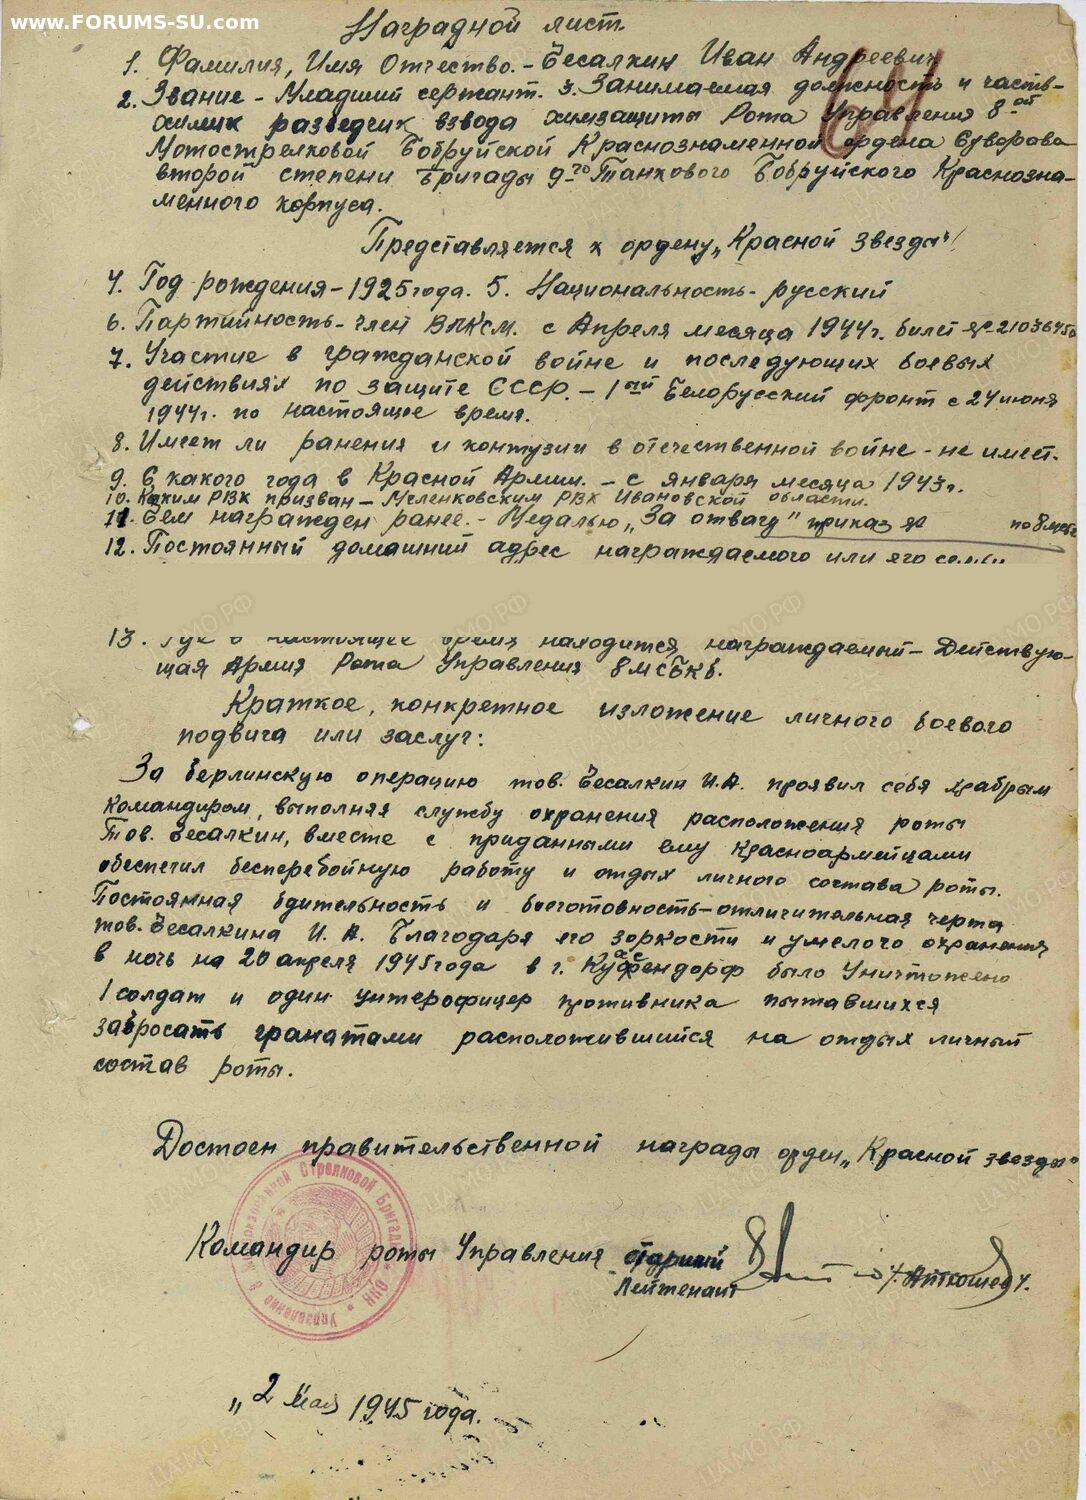 www.FORUMS-SU.com
Наградной лист
1. Фамилия, Имя Отчество. - Чесалкин Иван Андреевич
2. Звание - Младший сержант. 3. Занимаемая должность и часть-
химик разведчик взвода химзащиты Рота Управления 8ой
Мотострелковой Бобруйской Краснознаменной ордена Суворова
второй степени Бригады 9-го Танкового Бобруйского Краснозна-
менного корпуса.
Представляется к ордену „Красной звезды"
4. Год рождения - 1925 года. 5. Национальность - русский
6. Партийность - член ВЛКСМ. с Апреля месяца 1944 г. билет №
7. Участие в гражданской войне и последующих боевых
действиях по защите СССР. - 1ый Белорусский фронт с 24 июня
1944 г. по настоящее время.
8. Имеет ли ранения и контузии в отечественной войне - не имеет.
9. С какого года в Красной Армии. - с января месяца 1943 г.
10. Каким РВК призван - Меленковским РВК Ивановской области.
11. Чем награжден ранее. - Медалью „За отвагу" приказ № по
12. Постоянный домашний адрес награждаемого или его семьи
13. Где в настоящее время находится награждаемый - Действую-
щая Армия Рота Управления 8 МСБКБ.
Краткое, конкретное изложение личного боевого
подвига или заслуг:
За берлинскую операцию тов. Чесалкин И.А. проявил себя храбрым
командиром, выполняя службу охранения расположения роты
Тов. Чесалкин, вместе с приданными ему красноармейцами
обеспечил бесперебойную работу и отдых личного состава роты.
Постоянная бдительность и боеготовность - отличительная черта
тов. Чесалкина И. А. Благодаря его зоркости и умелого охранения
в ночь на 20 апреля 1945 года в г. было уничтожено
1 солдат и один унтерофицер противника пытавшихся
забросать гранатами расположившийся на отдых личный
состав роты.
Достоен правительственной награды орден „Красной звезды"
Командир роты Управления старший
Лейтенант
„2 Мая 1945 года.